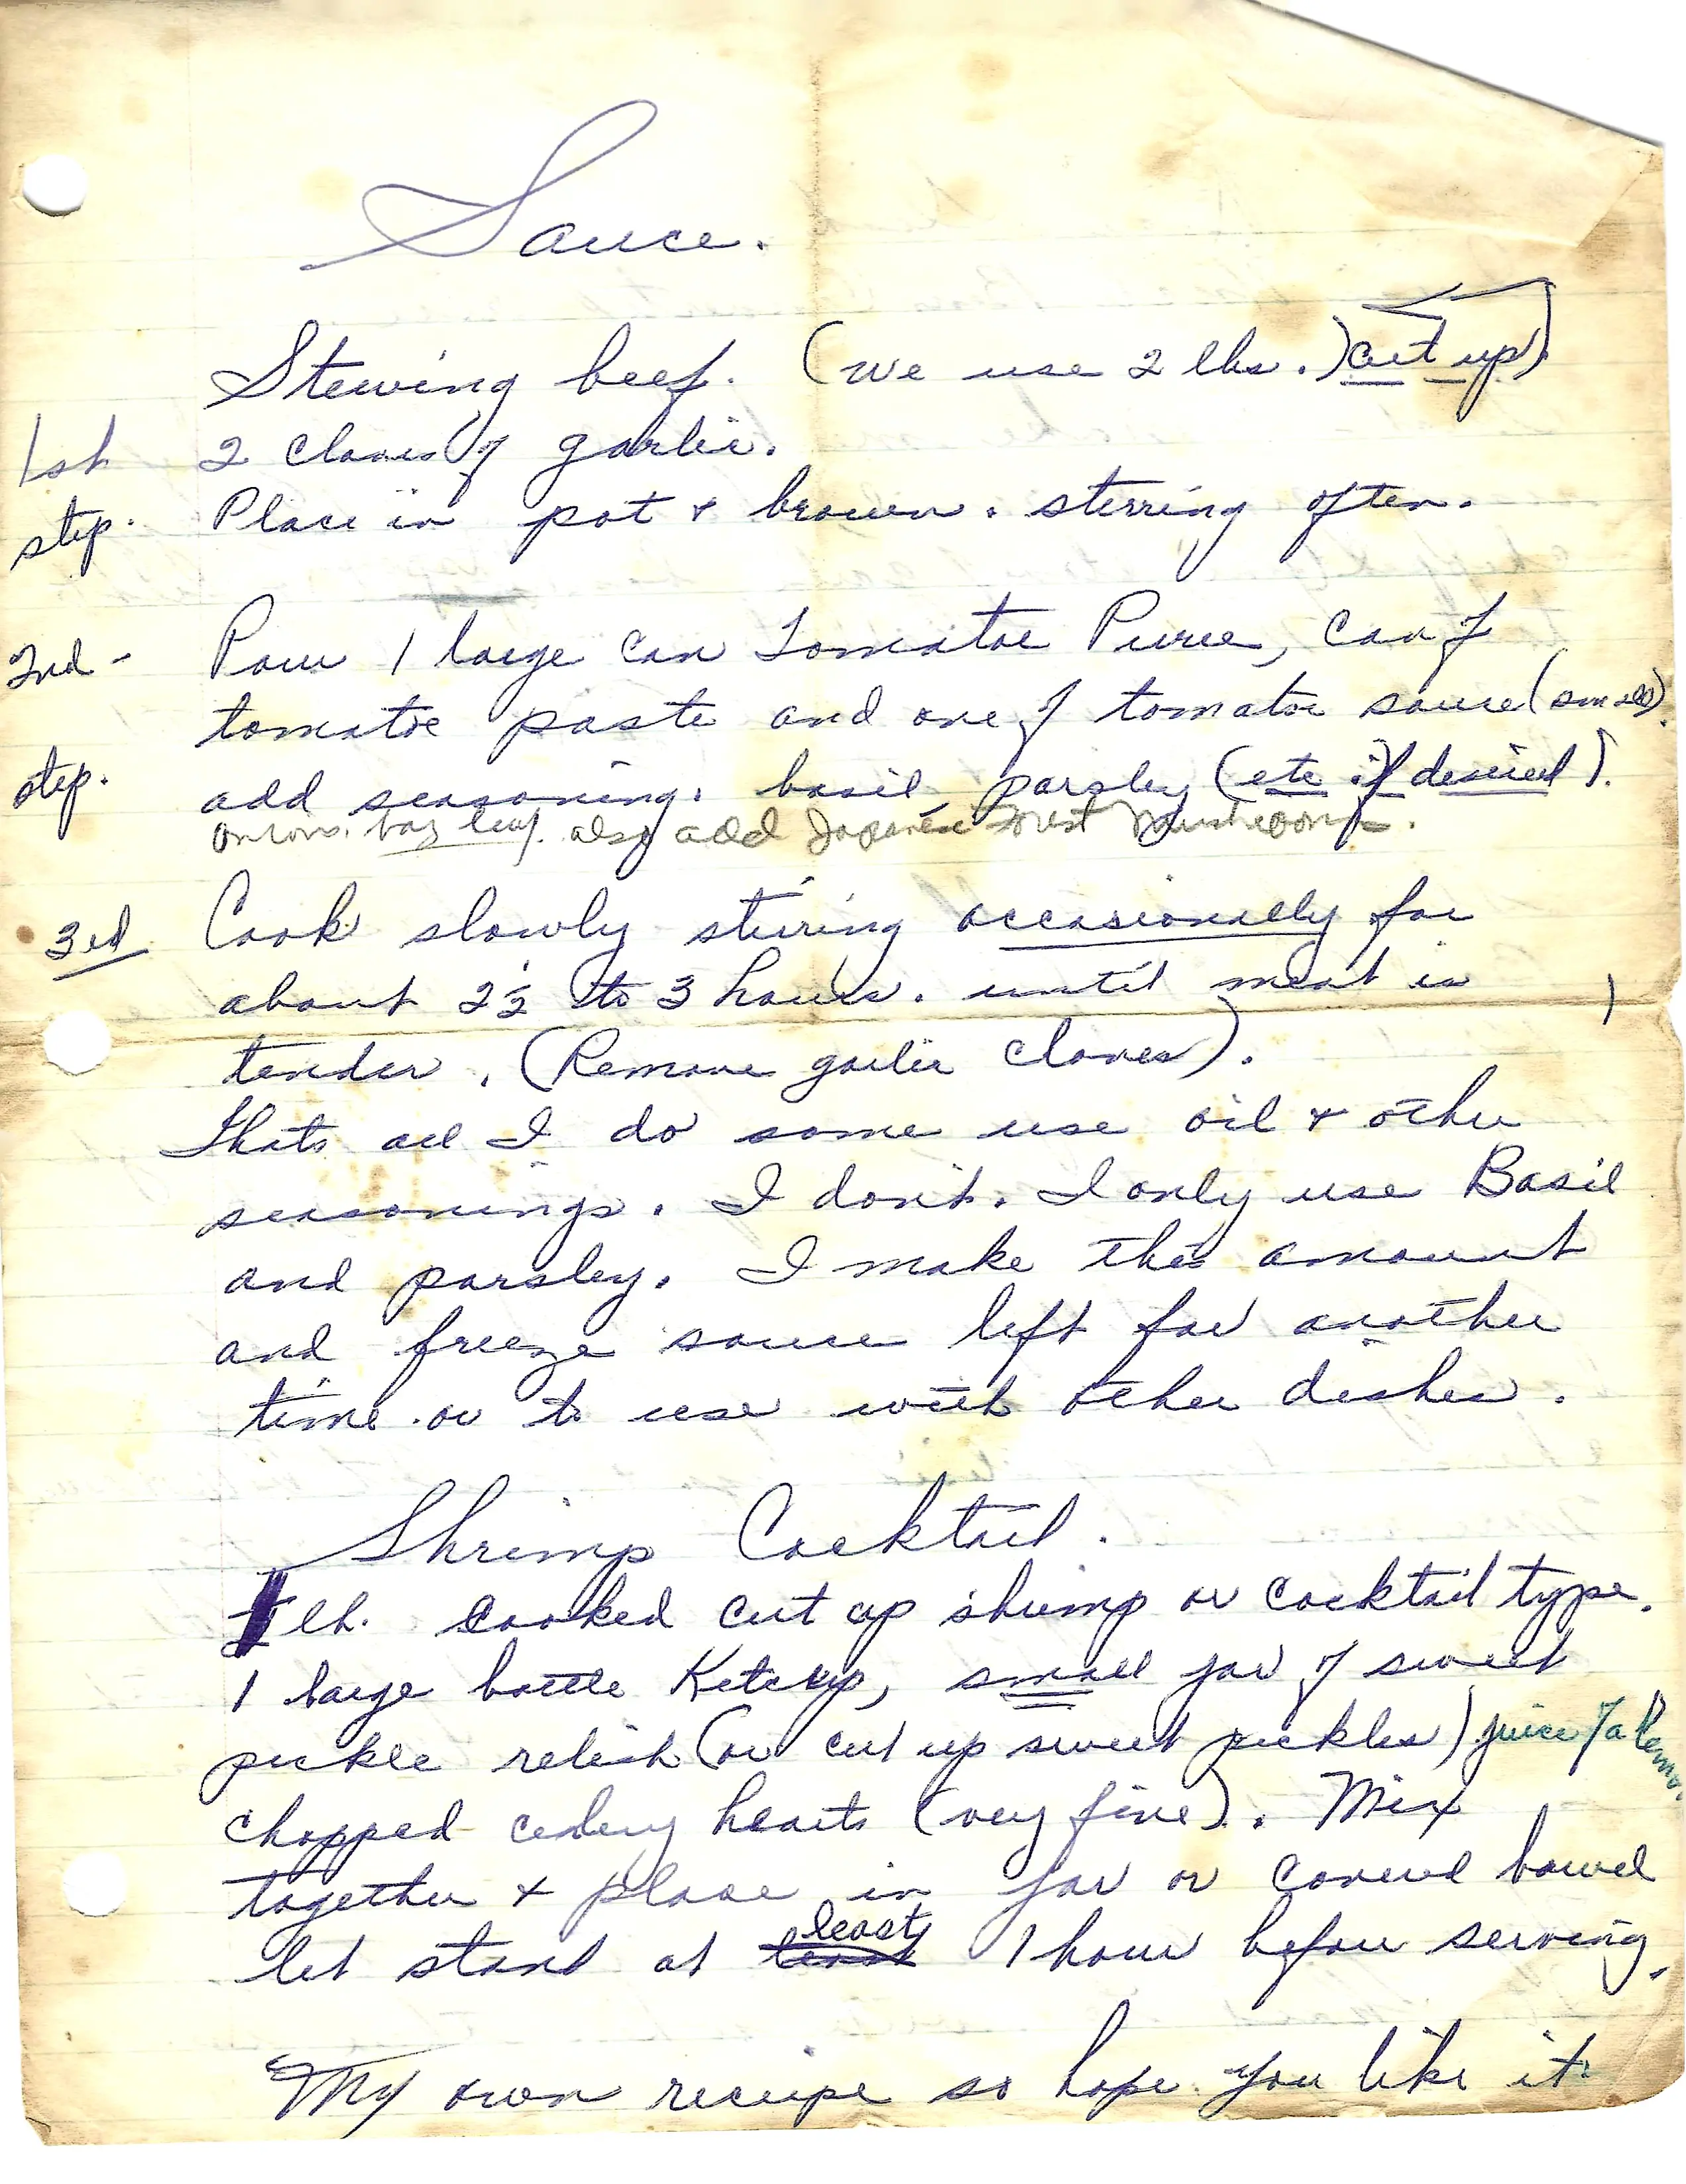 Sauce.
Stewing beef. (we use 2 lbs.) cut up)
1st 2 cloves of garlic.
step. Place in pot & brown. sterring often.
2nd - Pour 1 large can Tomatoe Puree, can of
tomatoe paste and one of tomatoe sauce (small).
step. add seasoning. basil, parsley (etc if desired).
onions. bay leaf. also add Japanese Forest Mushrooms.
3rd Cook slowly stirring occasionally for
about 2 1/2 to 3 hours. until meat is
tender. (Remove garlic cloves).
Thats all I do some use oil & other
seasonings. I don't. I only use Basil
and parsley. I make this amount
and freeze sauce left for another
time or to use with other dishes.
Shrimp Cocktail.
1 lb. cooked cut up shrimp or cocktail type.
1 large bottle Ketchup, small jar of sweet
pickle relish (or cut up sweet pickles) juice of a lemon
chopped celery hearts (very fine). Mix
together & place in jar or covered bowel
let stand at least 1 hour before serving.
My own recipe so hope you like it.